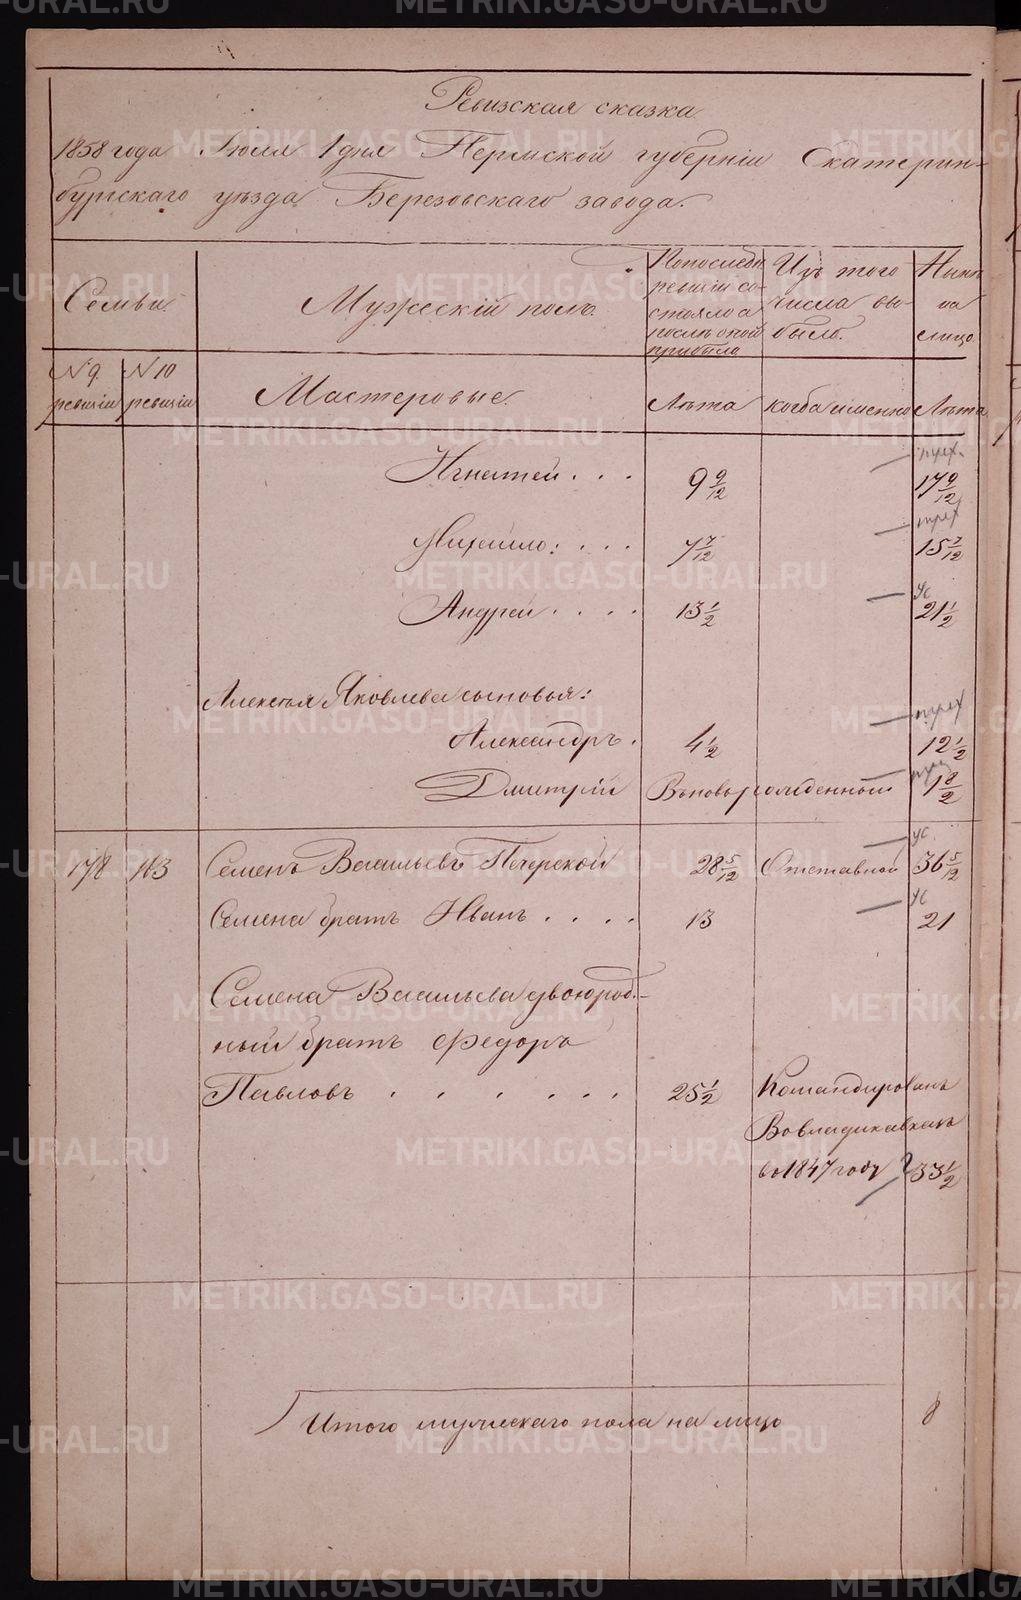 Ревизская сказка
1858 года Июля 1 дня Пермской губернiи Екатерин-
бургскаго уѣзда Березовскаго завода.
Семьи.
Мужескiй полъ.
По последн.
ревизiи со-
стояло а
послѣ оной
прибыло
Изъ того
числа вы-
было.
Нынѣ
на
лицо.
N 9.
ревизiи
N 10
ревизiи
Мастеровые.
Лѣта
когда именно
Лѣта
Игнатей . . . 9 9/12 17 9/12
Михайло: . . . 7 7/12 15 7/12
Андрей . . . . 13 1/2 21 1/2
Алексея Яковлева сыновья:
Александръ. 4 1/2 12 1/2
Дмитрiй Вновьрожденный
178 163 Семенъ Васильевъ Печерской 28 5/12 Отставной 36 5/12
Семена братъ Иванъ . . . . 13 21
Семена Васильева двоюрод-
ный братъ Федоръ
Павловъ . . . . . . 25 1/2 Командированъ
Вовладикавказъ
въ 1847 году 33 1/2
Итого мужескаго пола на лицо 8
METRIKI.GASO-URAL.RU